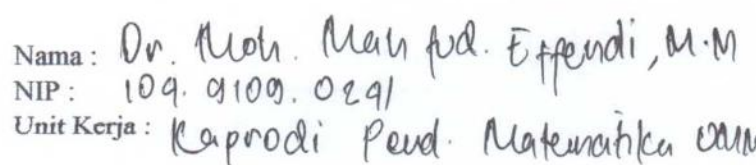 Nama : Dr. Moh. Mahfud. Effendi, M.M
NIP : 109. 9109. 0291
Unit Kerja : Kaprodi Pend. Matematika UMM